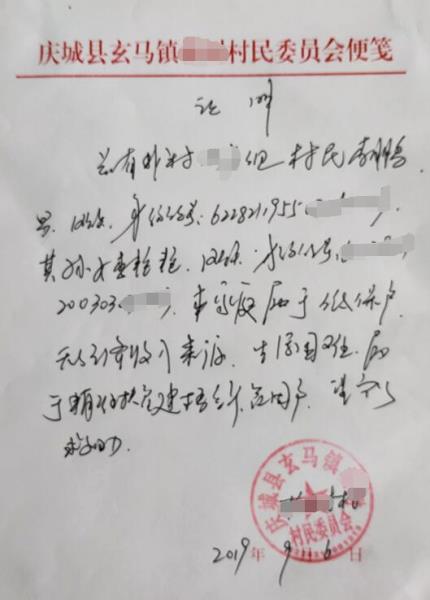 庆城县玄马镇村民委员会便笺
证明
兹有我村组村民李
男,汉族,身份证号:6228211955
其孙女李粉粉,汉族,身份证号:
200303,其家庭属于低保户
无引来收入来源,生活困难,属
于精准扶贫建档立卡贫困户,请予以
救助.
庆城县玄马镇
村民委员会
2019年9月6日